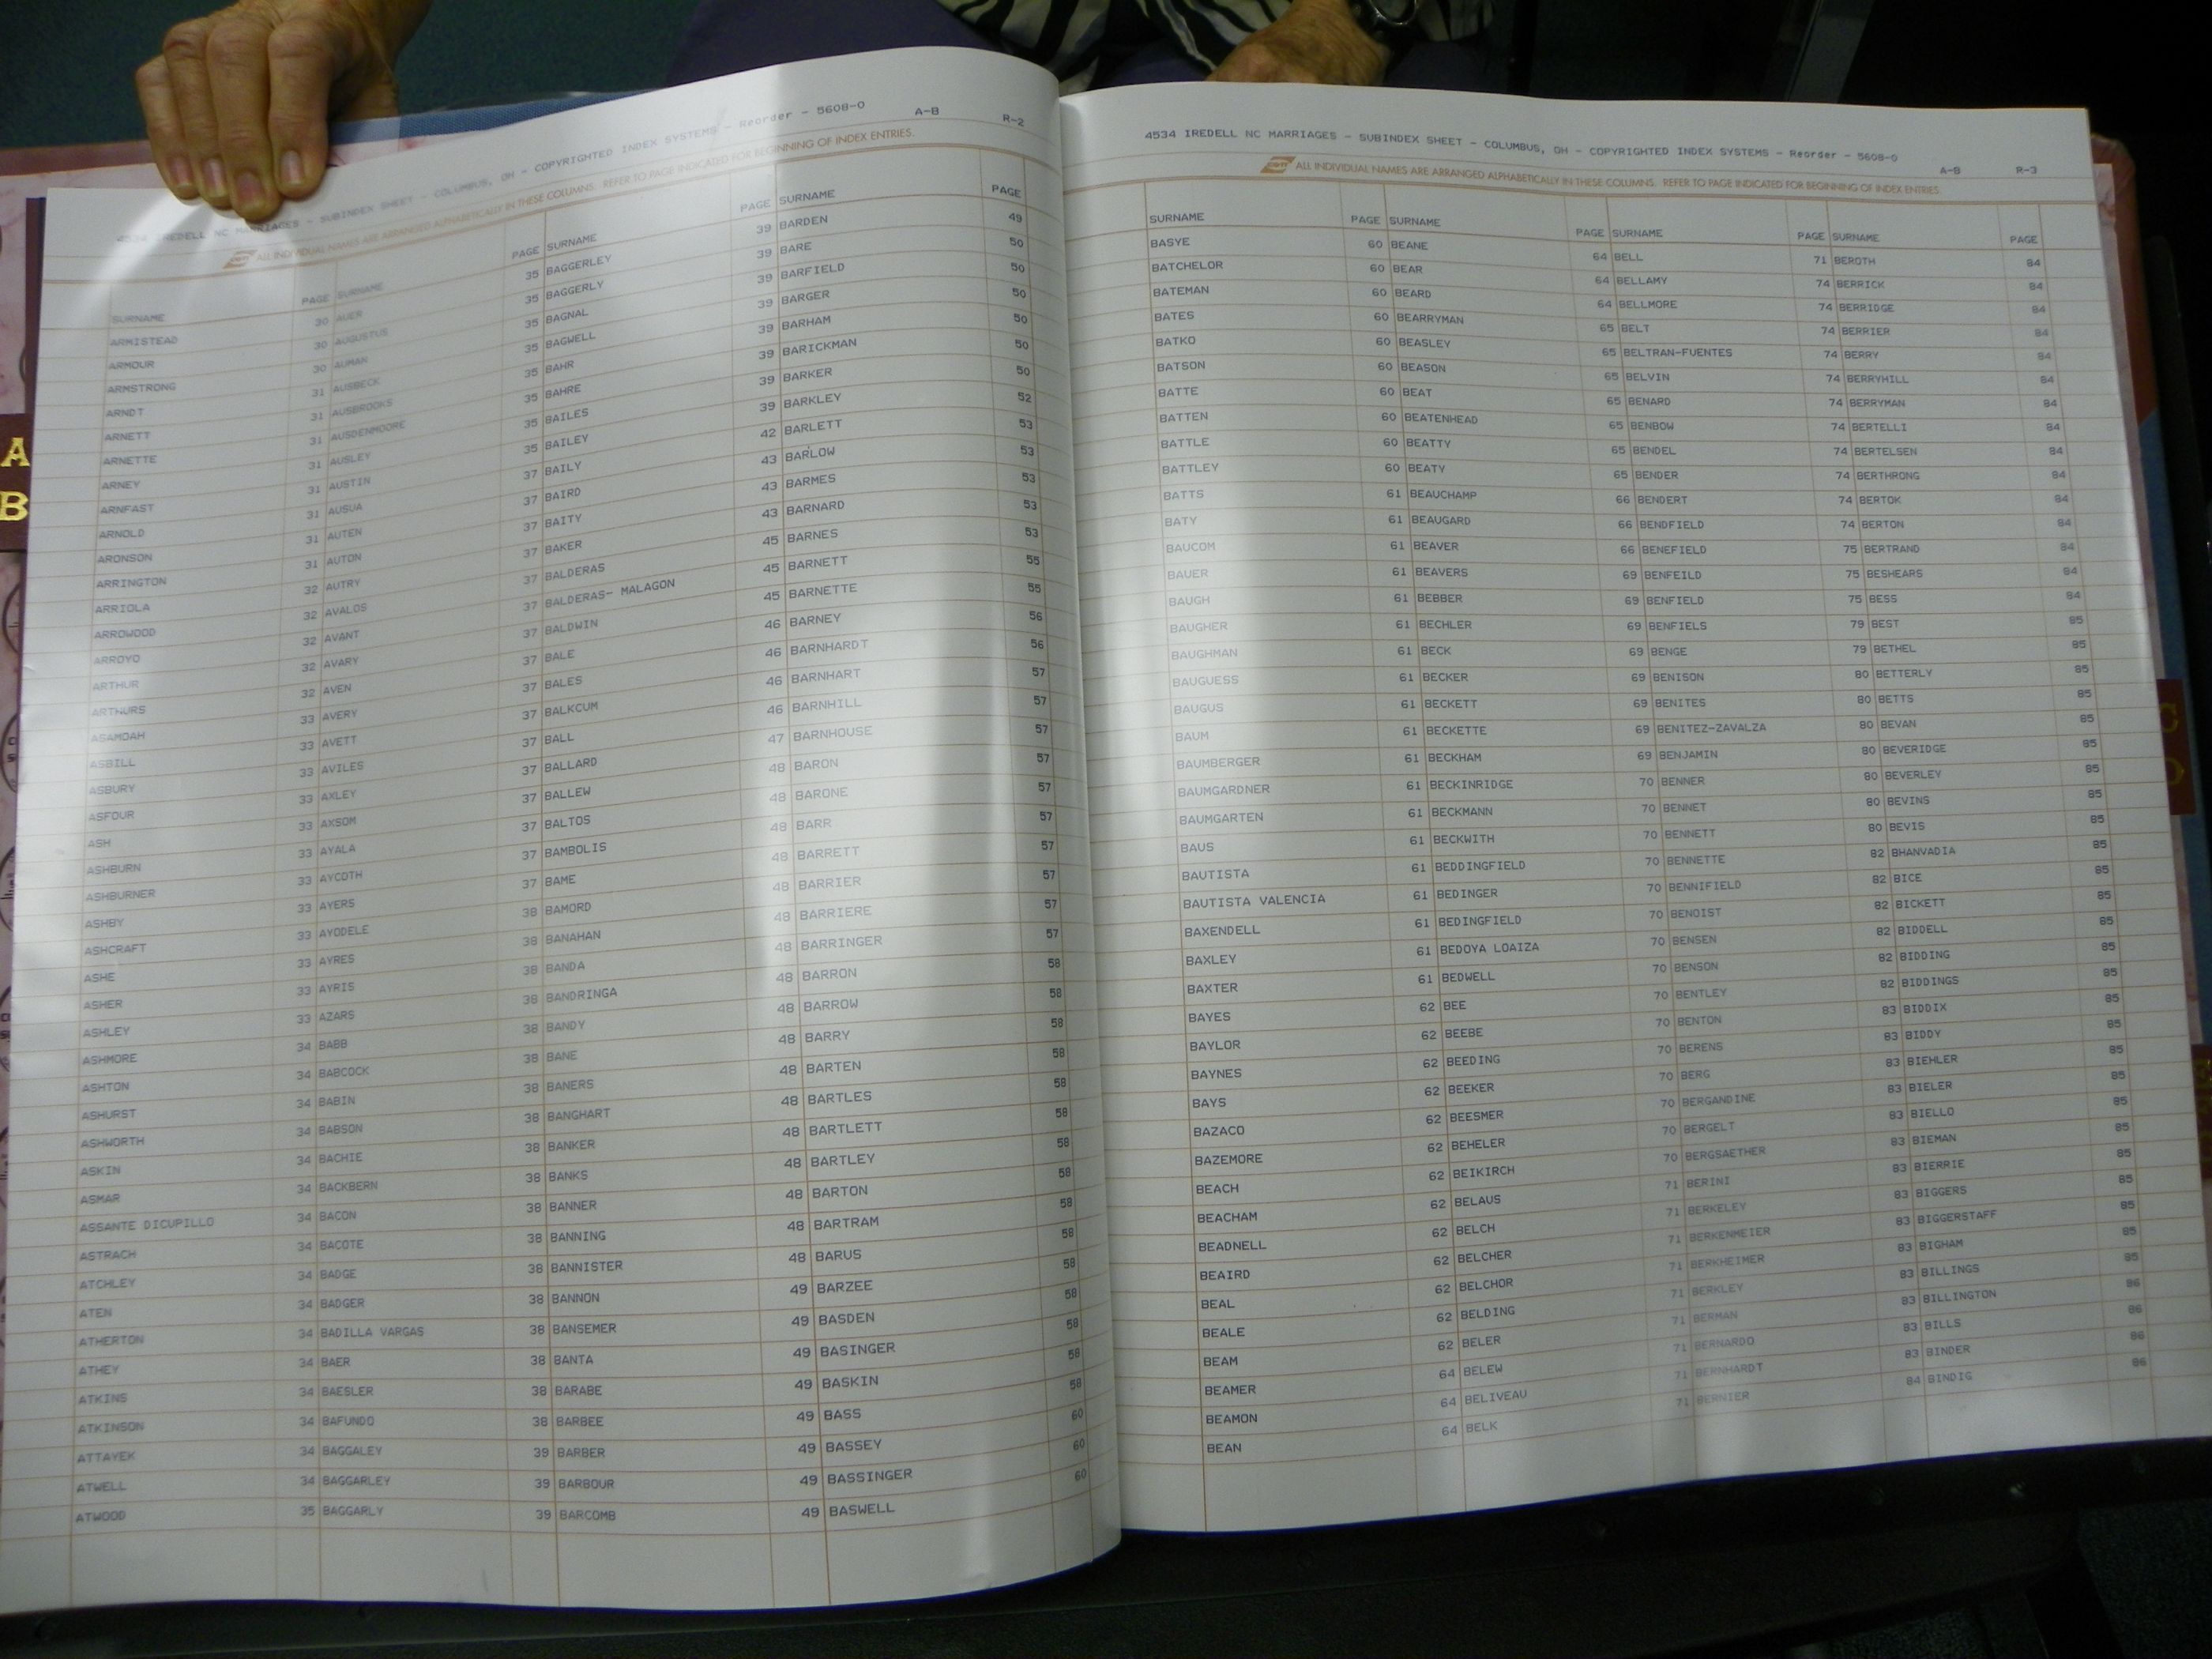 4534 IREDELL NC MARRIAGES - SUBINDEX SHEET - COLUMBUS, OH - COPYRIGHTED INDEX SYSTEMS - Reorder - 5608-0 A-B R-2
ALL INDIVIDUAL NAMES ARE ARRANGED ALPHABETICALLY IN THESE COLUMNS. REFER TO PAGE INDICATED FOR BEGINNING OF INDEX ENTRIES.
SURNAME PAGE
ARMISTEAD 30
ARMOUR 30
ARMSTRONG 30
ARNDT 31
ARNETT 31
ARNETTE 31
ARNEY 31
ARNFAST 31
ARNOLD 31
ARONSON 31
ARRINGTON 31
ARRIOLA 32
ARROWOOD 32
ARROYO 32
ARTHUR 32
ARTHURS 32
ASAMOAH 33
ASBILL 33
ASBURY 33
ASFOUR 33
ASH 33
ASHBURN 33
ASHBURNER 33
ASHBY 33
ASHCRAFT 33
ASHE 33
ASHER 33
ASHLEY 33
ASHMORE 34
ASHTON 34
ASHURST 34
ASHWORTH 34
ASKIN 34
ASMAR 34
ASSANTE DICUPILLO 34
ASTRACH 34
ATCHLEY 34
ATEN 34
ATHERTON 34
ATHEY 34
ATKINS 34
ATKINSON 34
ATTAYEK 34
ATWELL 34
ATWOOD 35
SURNAME PAGE
AUER 35
AUGUSTUS 35
AUMAN 35
AUSBECK 35
AUSBROOKS 35
AUSDENMOORE 35
AUSLEY 35
AUSTIN 35
AUSUA 37
AUTEN 37
AUTON 37
AUTRY 37
AVALOS 37
AVANT 37
AVARY 37
AVEN 37
AVERY 37
AVETT 37
AVILES 37
AXLEY 37
AXSOM 37
AYALA 37
AYCOTH 37
AYERS 37
AYODELE 38
AYRES 38
AYRIS 38
AZARS 38
BABB 38
BABCOCK 38
BABIN 38
BABSON 38
BACHIE 38
BACKBERN 38
BACON 38
BACOTE 38
BADGE 38
BADGER 38
BADILLA VARGAS 38
BAER 38
BAESLER 38
BAFUNDO 38
BAGGALEY 39
BAGGARLEY 39
BAGGARLY 39
SURNAME PAGE
BAGGERLEY 39
BAGGERLY 39
BAGNAL 39
BAGWELL 39
BAHR 39
BAHRE 39
BAILES 39
BAILEY 39
BAILY 42
BAIRD 43
BAITY 43
BAKER 43
BALDERAS 45
BALDERAS- MALAGON 45
BALDWIN 45
BALE 46
BALES 46
BALKCUM 46
BALL 46
BALLARD 47
BALLEW 48
BALTOS 48
BAMBOLIS 48
BAME 48
BAMORD 48
BANAHAN 48
BANDA 48
BANDRINGA 48
BANDY 48
BANE 48
BANERS 48
BANGHART 48
BANKER 48
BANKS 48
BANNER 48
BANNING 48
BANNISTER 48
BANNON 49
BANSEMER 49
BANTA 49
BARABE 49
BARBEE 49
BARBER 49
BARBOUR 49
BARCOMB 49
SURNAME PAGE
BARDEN 49
BARE 50
BARFIELD 50
BARGER 50
BARHAM 50
BARICKMAN 50
BARKER 50
BARKLEY 52
BARLETT 53
BARLOW 53
BARMES 53
BARNARD 53
BARNES 53
BARNETT 55
BARNETTE 55
BARNEY 56
BARNHARDT 56
BARNHART 57
BARNHILL 57
BARNHOUSE 57
BARON 57
BARONE 57
BARR 57
BARRETT 57
BARRIER 57
BARRIERE 57
BARRINGER 57
BARRON 58
BARROW 58
BARRY 58
BARTEN 58
BARTLES 58
BARTLETT 58
BARTLEY 58
BARTON 58
BARTRAM 58
BARUS 58
BARZEE 58
BASDEN 58
BASINGER 58
BASKIN 58
BASS 58
BASSEY 60
BASSINGER 60
BASWELL 60
4534 IREDELL NC MARRIAGES - SUBINDEX SHEET - COLUMBUS, OH - COPYRIGHTED INDEX SYSTEMS - Reorder - 5608-0 A-B R-3
ALL INDIVIDUAL NAMES ARE ARRANGED ALPHABETICALLY IN THESE COLUMNS. REFER TO PAGE INDICATED FOR BEGINNING OF INDEX ENTRIES.
SURNAME PAGE
BASYE 60
BATCHELOR 60
BATEMAN 60
BATES 60
BATKO 60
BATSON 60
BATTE 60
BATTEN 60
BATTLE 60
BATTLEY 60
BATTS 61
BATY 61
BAUCOM 61
BAUER 61
BAUGH 61
BAUGHER 61
BAUGHMAN 61
BAUGUESS 61
BAUGUS 61
BAUM 61
BAUMBERGER 61
BAUMGARDNER 61
BAUMGARTEN 61
BAUS 61
BAUTISTA 61
BAUTISTA VALENCIA 61
BAXENDELL 61
BAXLEY 61
BAXTER 61
BAYES 62
BAYLOR 62
BAYNES 62
BAYS 62
BAZACO 62
BAZEMORE 62
BEACH 62
BEACHAM 62
BEADNELL 62
BEAIRD 62
BEAL 62
BEALE 62
BEAM 62
BEAMER 64
BEAMON 64
BEAN 64
SURNAME PAGE
BEANE 64
BEAR 64
BEARD 64
BEARRYMAN 65
BEASLEY 65
BEASON 65
BEAT 65
BEATENHEAD 65
BEATTY 65
BEATY 65
BEAUCHAMP 66
BEAUGARD 66
BEAVER 66
BEAVERS 69
BEBBER 69
BECHLER 69
BECK 69
BECKER 69
BECKETT 69
BECKETTE 69
BECKHAM 69
BECKINRIDGE 70
BECKMANN 70
BECKWITH 70
BEDDINGFIELD 70
BEDINGER 70
BEDINGFIELD 70
BEDOYA LOAIZA 70
BEDWELL 70
BEE 70
BEEBE 70
BEEDING 70
BEEKER 70
BEESMER 70
BEHELER 70
BEIKIRCH 70
BELAUS 71
BELCH 71
BELCHER 71
BELCHOR 71
BELDING 71
BELER 71
BELEW 71
BELIVEAU 71
BELK 71
SURNAME PAGE
BELL 71
BELLAMY 74
BELLMORE 74
BELT 74
BELTRAN-FUENTES 74
BELVIN 74
BENARD 74
BENBOW 74
BENDEL 74
BENDER 74
BENDERT 74
BENDFIELD 74
BENEFIELD 75
BENFEILD 75
BENFIELD 75
BENFIELS 79
BENGE 79
BENISON 80
BENITES 80
BENITEZ-ZAVALZA 80
BENJAMIN 80
BENNER 80
BENNET 80
BENNETT 80
BENNETTE 82
BENNIFIELD 82
BENOIST 82
BENSEN 82
BENSON 82
BENTLEY 82
BENTON 83
BERENS 83
BERG 83
BERGANDINE 83
BERGELT 83
BERGSAETHER 83
BERINI 83
BERKELEY 83
BERKENMEIER 83
BERKHEIMER 83
BERKLEY 83
BERMAN 83
BERNARDO 83
BERNHARDT 83
BERNIER 84
SURNAME PAGE
BEROTH 84
BERRICK 84
BERRIDGE 84
BERRIER 84
BERRY 84
BERRYHILL 84
BERRYMAN 84
BERTELLI 84
BERTELSEN 84
BERTHRONG 84
BERTOK 84
BERTON 84
BERTRAND 84
BESHEARS 84
BESS 84
BEST 85
BETHEL 85
BETTERLY 85
BETTS 85
BEVAN 85
BEVERIDGE 85
BEVERLEY 85
BEVINS 85
BEVIS 85
BHANVADIA 85
BICE 85
BICKETT 85
BIDDELL 85
BIDDING 85
BIDDINGS 85
BIDDIX 85
BIDDY 85
BIEHLER 85
BIELER 85
BIELLO 85
BIEMAN 85
BIERRIE 85
BIGGERS 85
BIGGERSTAFF 85
BIGHAM 85
BILLINGS 85
BILLINGTON 86
BILLS 86
BINDER 86
BINDIG 86
A
B